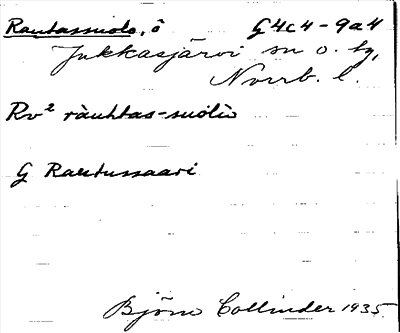 Rautassuolo, ö G4c4-9a4
Jukkasjärvi sn o. tg,
Norrb. l.
Rv² ràuhtas-suolù
G Rautussaari
Björn Collinder 1935